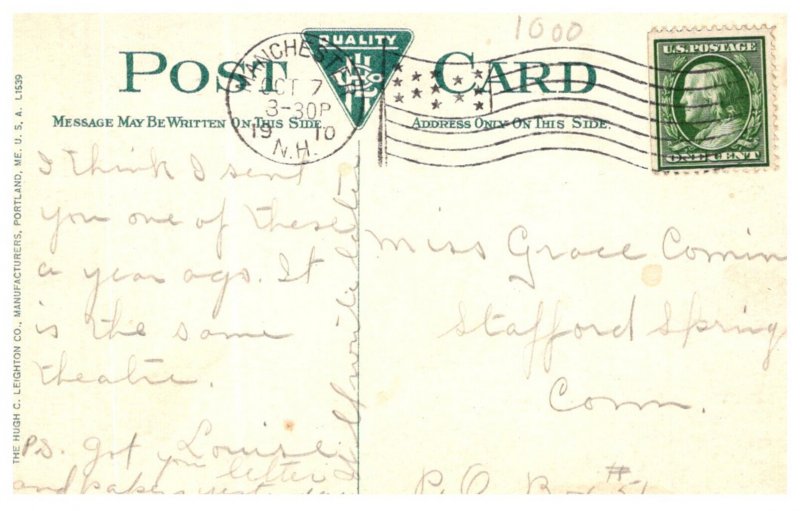 1000
POST CARD
QUALITY
MESSAGE MAY BE WRITTEN ON THIS SIDE.
ADDRESS ONLY ON THIS SIDE.
MANCHESTER
OCT 7
3-30P
1910
N.H.
U.S. POSTAGE
ONE CENT
THE HUGH C. LEIGHTON CO., MANUFACTURERS, PORTLAND, ME. U. S. A. L1539
I think I sent
you one of these
a year ago. It
is the same
theatre.
Louise
P.S. Got your letter
and
write later
Miss Grace Comin
Stafford Spring
Conn.
P.O. Box #51